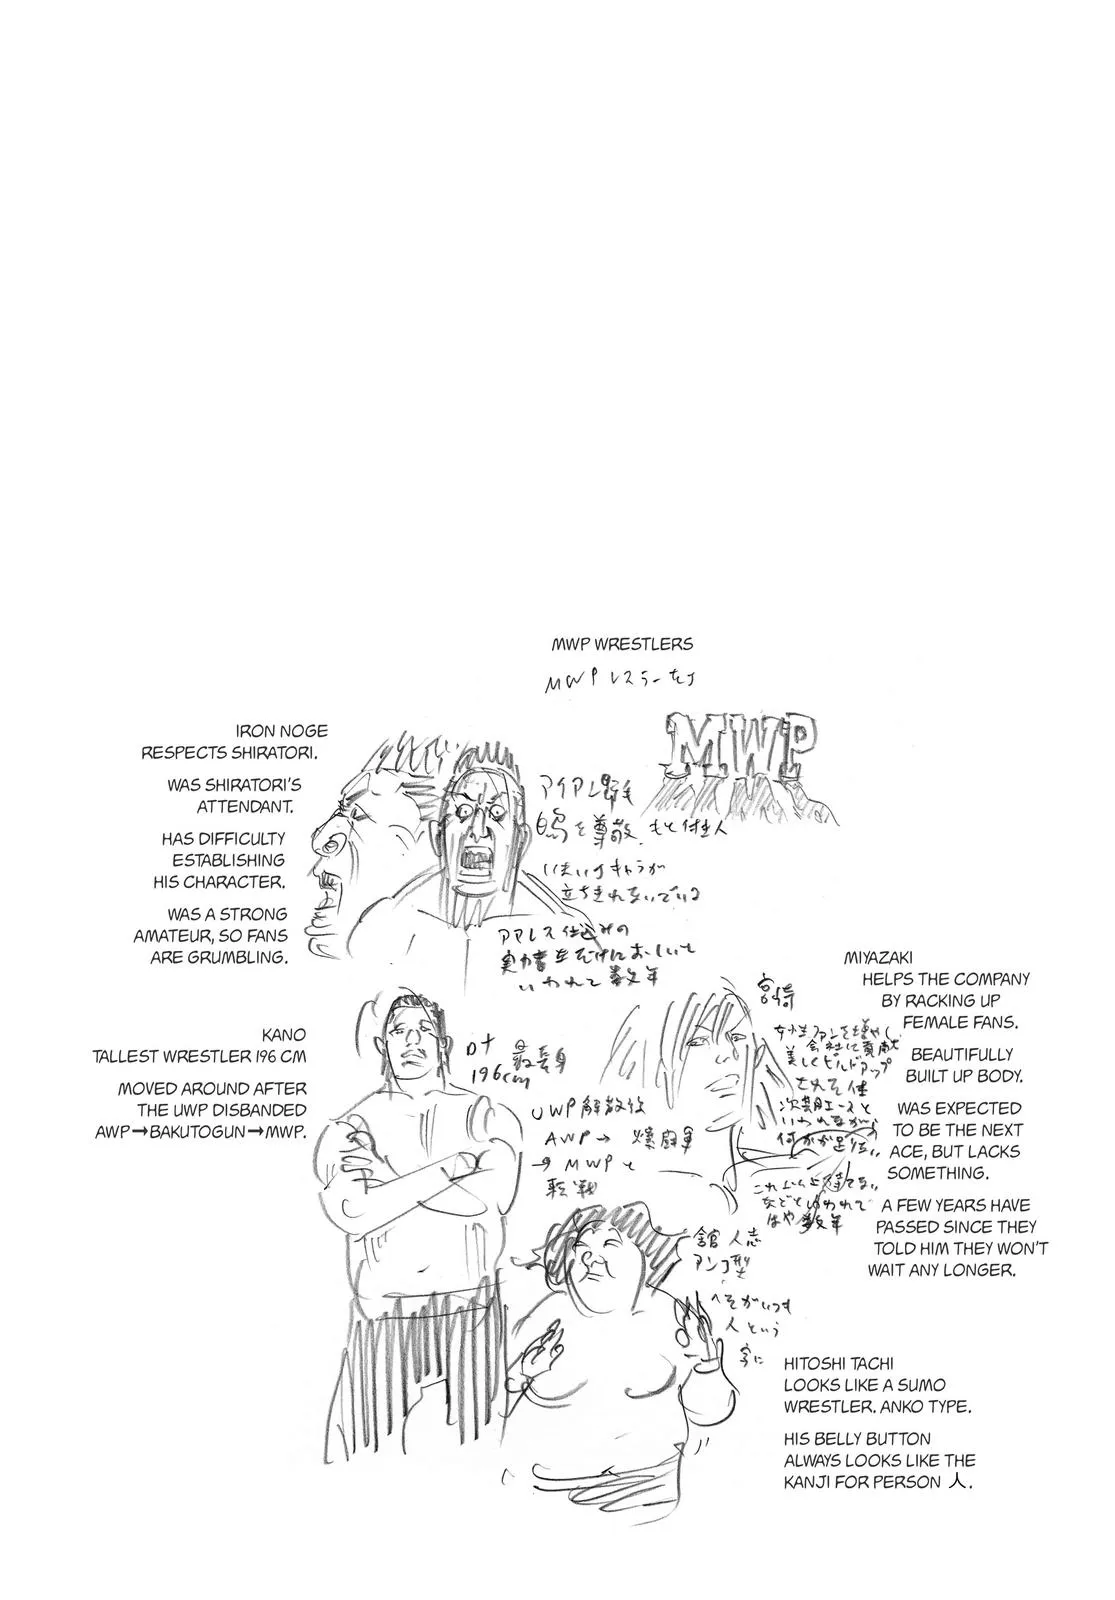 MWP WRESTLERS
MWP レスラーたち
MWP
IRON NOGE
RESPECTS SHIRATORI.
WAS SHIRATORI'S
ATTENDANT.
HAS DIFFICULTY
ESTABLISHING
HIS CHARACTER.
WAS A STRONG
AMATEUR, SO FANS
ARE GRUMBLING.
アイアン野毛
白鳥を尊敬 もと付き人
いまいちキャラが
立ちきれないでいる
アマレス仕込みの
実力者
いわれて数年
KANO
TALLEST WRESTLER 196 CM
MOVED AROUND AFTER
THE UWP DISBANDED
AWP→BAKUTOGUN→MWP.
最長身
196cm
UWP解散後
AWP→ 爆闘軍
→MWPと
転戦
MIYAZAKI
HELPS THE COMPANY
BY RACKING UP
FEMALE FANS.
BEAUTIFULLY
BUILT UP BODY.
WAS EXPECTED
TO BE THE NEXT
ACE, BUT LACKS
SOMETHING.
A FEW YEARS HAVE
PASSED SINCE THEY
TOLD HIM THEY WON'T
WAIT ANY LONGER.
宮崎
女性ファンを増やし
会社に貢献
美しくビルドアップ
された体
次期エースと
いわれながら
何かが足りない
これ以上待てない
などといわれて
はや数年
舘 人志
アンコ型
へそがいつも
人という
字に
HITOSHI TACHI
LOOKS LIKE A SUMO
WRESTLER. ANKO TYPE.
HIS BELLY BUTTON
ALWAYS LOOKS LIKE THE
KANJI FOR PERSON 人.